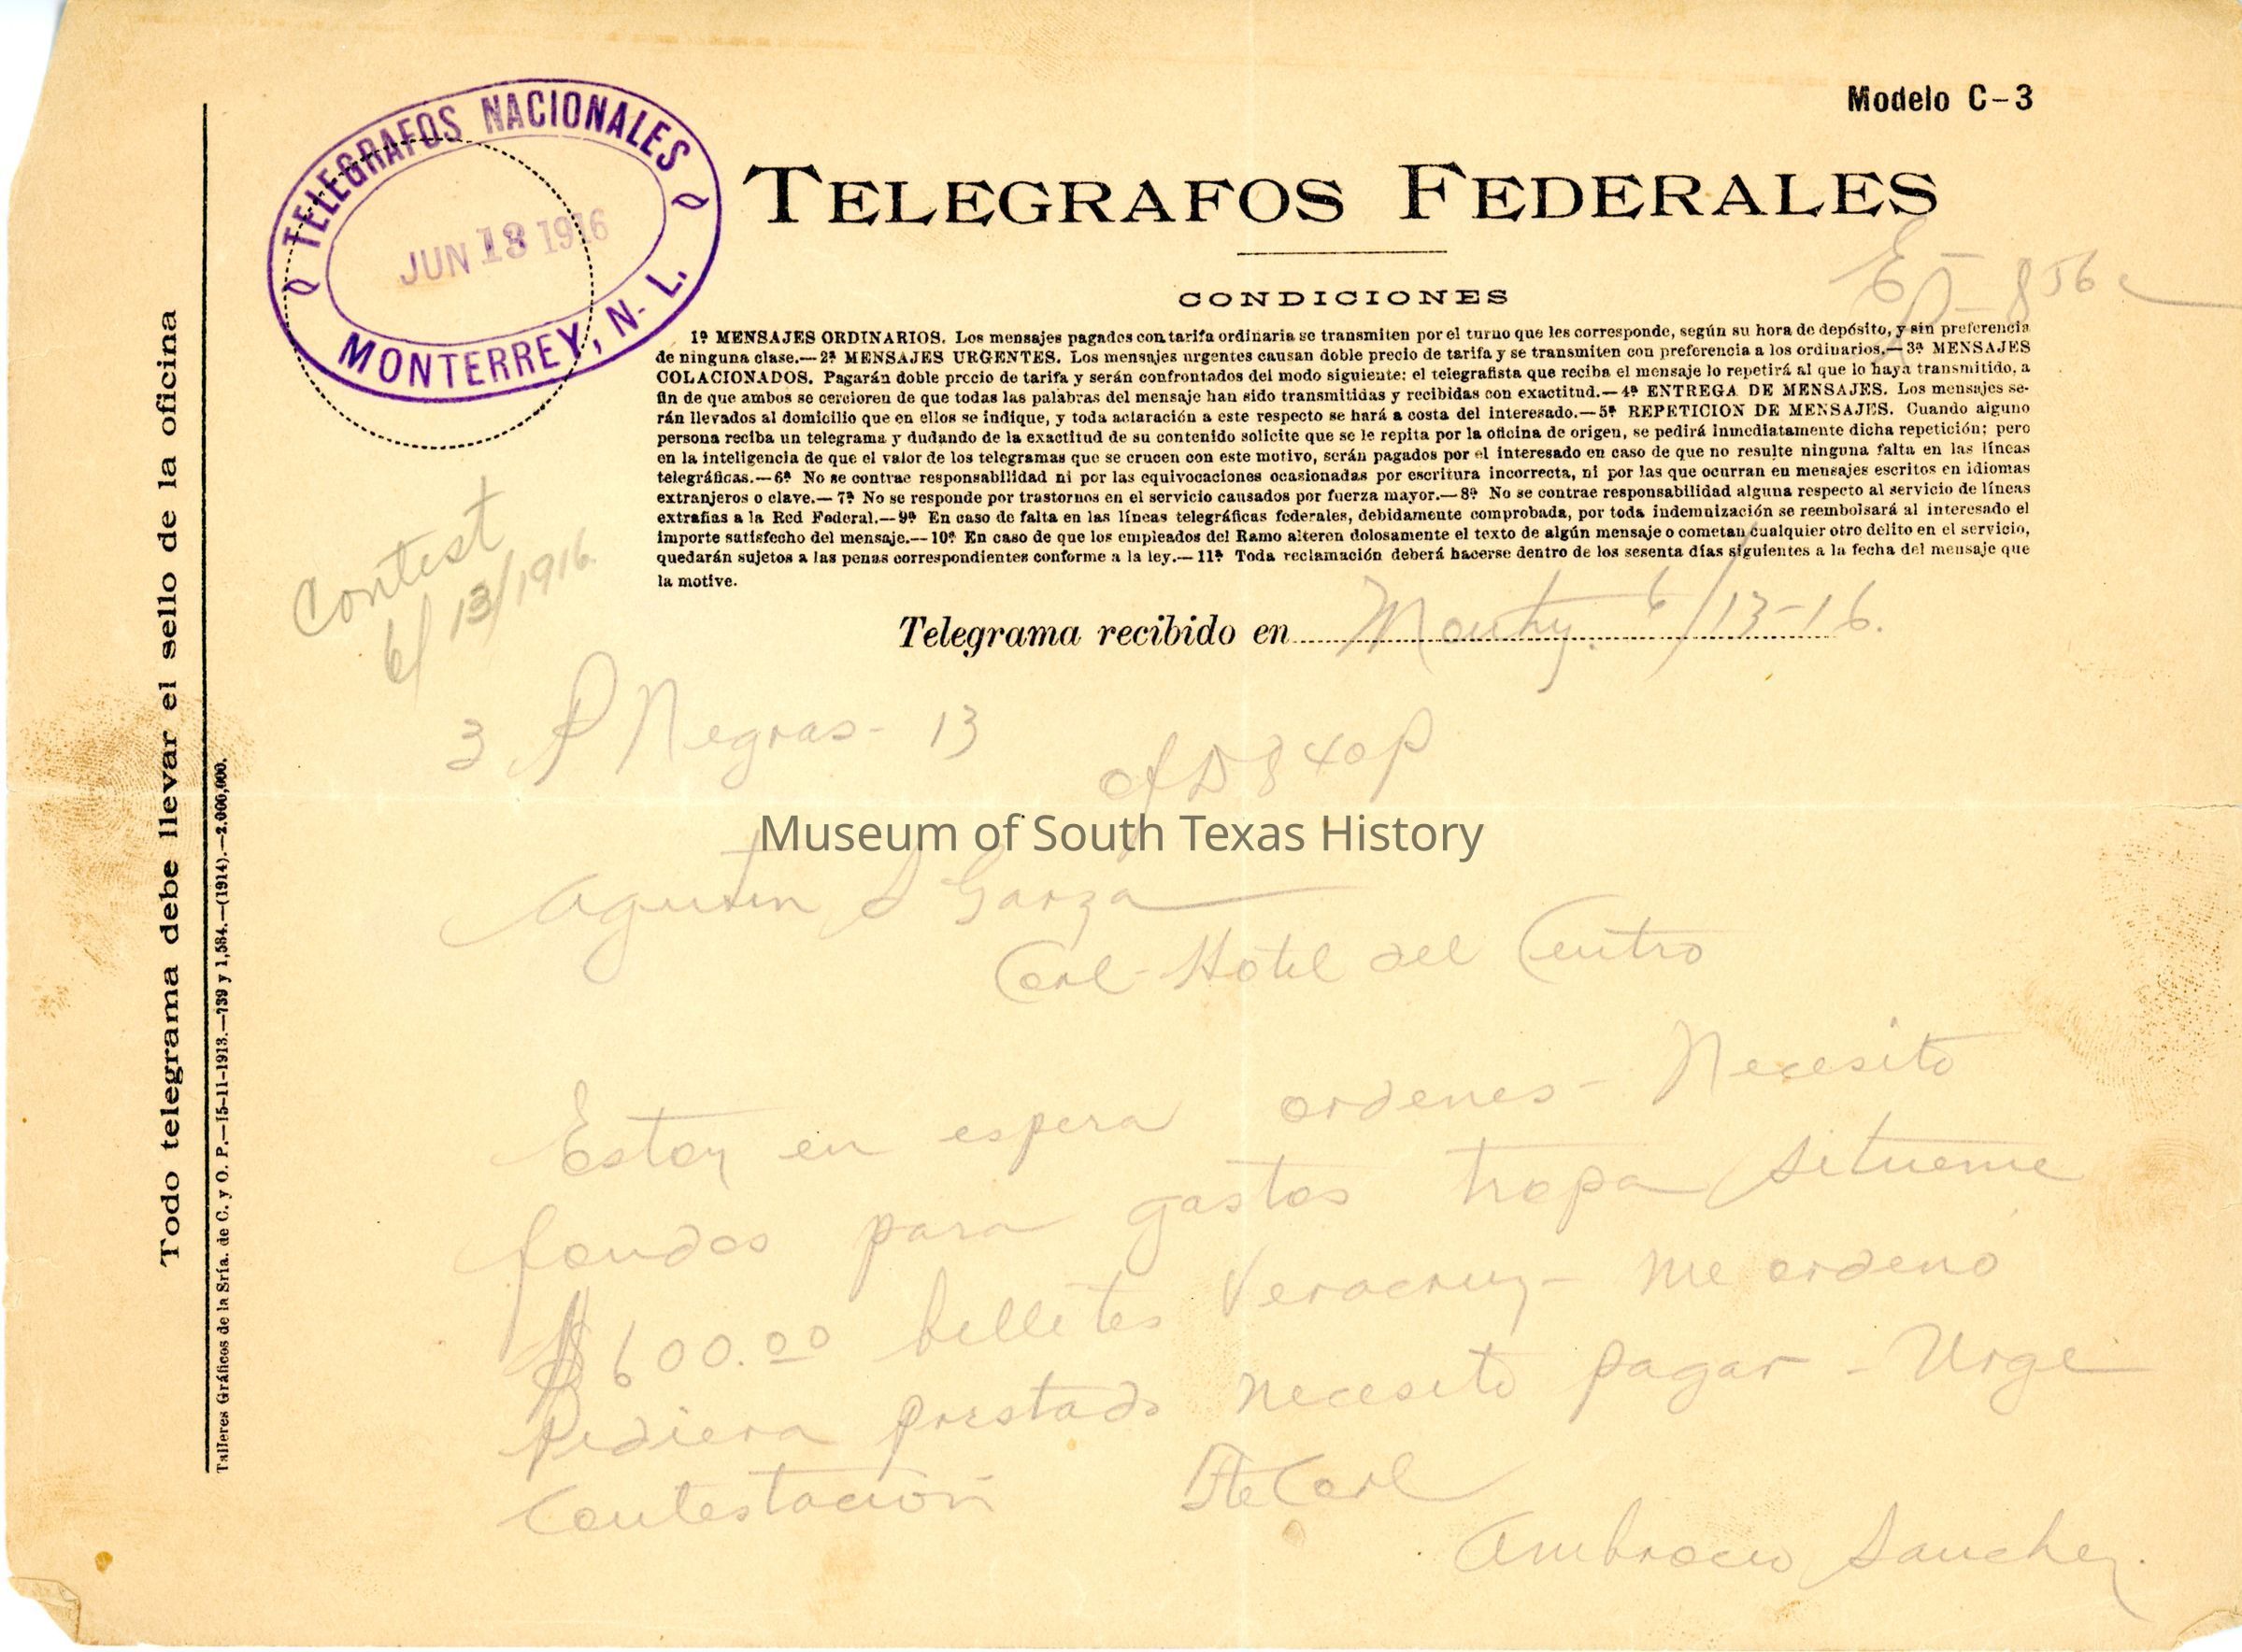 Modelo C-3
TELEGRAFOS NACIONALES
JUN 13 1916
MONTERREY, N. L.
TELEGRAFOS FEDERALES
856
CONDICIONES
1ª MENSAJES ORDINARIOS. Los mensajes pagados con tarifa ordinaria se transmiten por el turno que les corresponde, según su hora de depósito, y sin preferencia
de ninguna clase.—2ª MENSAJES URGENTES. Los mensajes urgentes causan doble precio de tarifa y se transmiten con preferencia a los ordinarios.—3ª MENSAJES
COLACIONADOS. Pagarán doble precio de tarifa y serán confrontados del modo siguiente: el telegrafista que reciba el mensaje lo repetirá al que lo haya transmitido, a
fin de que ambos se cercioren de que todas las palabras del mensaje han sido transmitidas y recibidas con exactitud.—4ª ENTREGA DE MENSAJES. Los mensajes se-
rán llevados al domicilio que en ellos se indique, y toda aclaración a este respecto se hará a costa del interesado.—5ª REPETICION DE MENSAJES. Cuando alguno
persona reciba un telegrama y dudando de la exactitud de su contenido solicite que se le repita por la oficina de origen, se pedirá inmediatamente dicha repetición; pero
en la inteligencia de que el valor de los telegramas que se crucen con este motivo, serán pagados por el interesado en caso de que no resulte ninguna falta en las líneas
telegráficas.—6ª No se contrae responsabilidad ni por las equivocaciones ocasionadas por escritura incorrecta, ni por las que ocurran en mensajes escritos en idiomas
extranjeros o clave.—7ª No se responde por trastornos en el servicio causados por fuerza mayor.—8ª No se contrae responsabilidad alguna respecto al servicio de líneas
extrañas a la Red Federal.—9ª En caso de falta en las líneas telegráficas federales, debidamente comprobada, por toda indemnización se reembolsará al interesado el
importe satisfecho del mensaje.—10ª En caso de que los empleados del Ramo alteren dolosamente el texto de algún mensaje o cometan cualquier otro delito en el servicio,
quedarán sujetos a las penas correspondientes conforme a la ley.—11ª Toda reclamación deberá hacerse dentro de los sesenta días siguientes a la fecha del mensaje que
la motive.
Contest
6/13/1916.
Telegrama recibido en Monty. 6/13-16.
3 P Negras- 13
of D 8 40 P
Museum of South Texas History
Agustin S Garza
Corl- Hotel del Centro
Estoy en espera ordenes- Necesito
fondos para gastos tropa situeme
$600.00 billetes Veracruz- me ordeno
pidiera prestado necesito pagar - Urge
Contestación
Tte Corl
Ambrocio Sanchez.
Todo telegrama debe llevar el sello de la oficina
Talleres Gráficos de la Sría. de C. y O. P.—15-11-1913.—739 y 1,584.—(1914).—2.000,000.